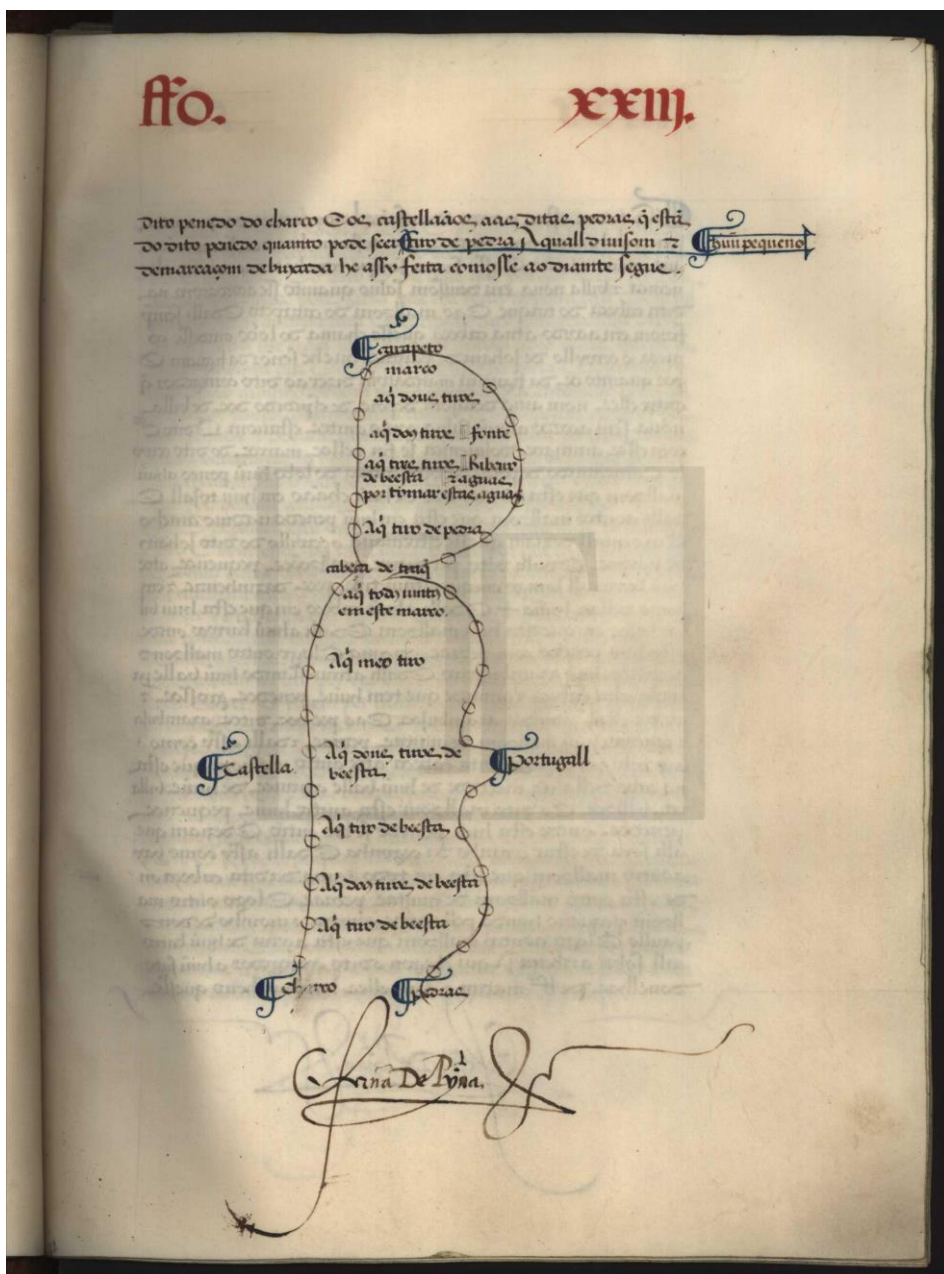 ffo. xxiij.
dito penedo do charco E os castellaãos aas ditas pedras q̃ estã
do dito penedo quanto pode seer tiro de pedra A quall diuisom ⁊ huũ pequeno
demarcaçom de buxarda he assy feita como sse ao diante segue.
Carapeto
marco
aq̃ dous tiros
aq̃ dous tiros fonte
aq̃ tres tiros Ribeiro
de beesta ⁊ aguas
por tomar estas aguas
Aq̃ tiro de pedra
cabeça de
aq̃ todos juntos
em este marco.
Aq̃ meo tiro
Castella
Aq̃ dous tiros de
beesta
Portugall
Aq̃ tiro de beesta
Aq̃ dous tiros de beesta
Aq̃ tiro de beesta
Charco pedras
Fernã De Pyna